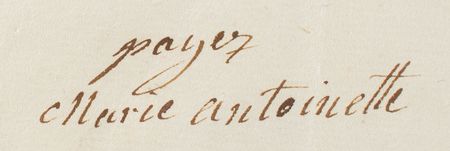 payez
Marie antoinette